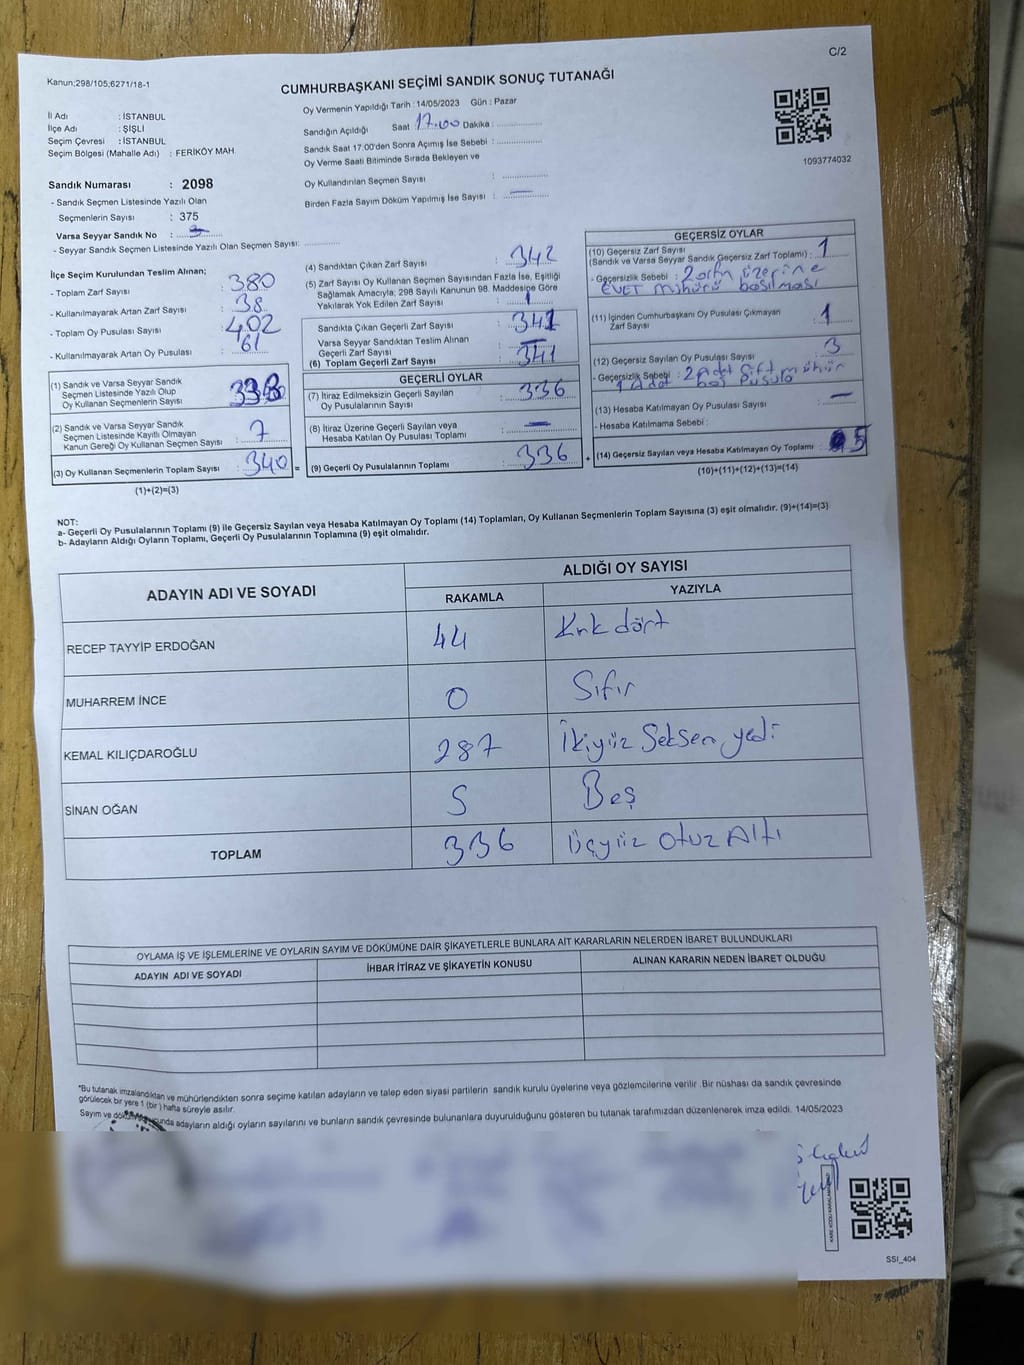 C/2
Kanun;298/105;6271/18-1
CUMHURBAŞKANI SEÇİMİ SANDIK SONUÇ TUTANAĞI
İl Adı : İSTANBUL
İlçe Adı : ŞİŞLİ
Seçim Çevresi : İSTANBUL
Seçim Bölgesi (Mahalle Adı) : FERİKÖY MAH.
Oy Vermenin Yapıldığı Tarih : 14/05/2023 Gün : Pazar
Sandığın Açıldığı Saat 17.00 Dakika :
Sandık Saat 17.00'den Sonra Açımış İse Sebebi :
Oy Verme Saati Bitiminde Sırada Bekleyen ve
Oy Kullandırılan Seçmen Sayısı :
Birden Fazla Sayım Döküm Yapılmış İse Sayısı : —
1093774032
Sandık Numarası : 2098
- Sandık Seçmen Listesinde Yazılı Olan
Seçmenlerin Sayısı : 375
Varsa Seyyar Sandık No :
- Seyyar Sandık Seçmen Listesinde Yazılı Olan Seçmen Sayısı:
İlçe Seçim Kurulundan Teslim Alınan;
- Toplam Zarf Sayısı : 380
- Kullanılmayarak Artan Zarf Sayısı : 38
- Toplam Oy Pusulası Sayısı : 402
- Kullanılmayarak Artan Oy Pusulası : 61
(1) Sandık ve Varsa Seyyar Sandık
Seçmen Listesinde Yazılı Olup
Oy Kullanan Seçmenlerin Sayısı :
(2) Sandık ve Varsa Seyyar Sandık
Seçmen Listesinde Kayıtlı Olmayan
Kanun Gereği Oy Kullanan Seçmen Sayısı : 7
(3) Oy Kullanan Seçmenlerin Toplam Sayısı : 340 =
(1)+(2)=(3)
(4) Sandıktan Çıkan Zarf Sayısı : 342
(5) Zarf Sayısı Oy Kullanan Seçmen Sayısından Fazla İse, Eşitliği
Sağlamak Amacıyla, 298 Sayılı Kanunun 98. Maddesine Göre
Yakılarak Yok Edilen Zarf Sayısı : 1
Sandıkta Çıkan Geçerli Zarf Sayısı : 341
Varsa Seyyar Sandıktan Teslim Alınan
Geçerli Zarf Sayısı : —
(6) Toplam Geçerli Zarf Sayısı : 341
GEÇERLİ OYLAR
(7) İtiraz Edilmeksizin Geçerli Sayılan
Oy Pusulalarının Sayısı : 336
(8) İtiraz Üzerine Geçerli Sayılan veya
Hesaba Katılan Oy Pusulası Toplamı : —
(9) Geçerli Oy Pusulalarının Toplamı : 336 +
GEÇERSİZ OYLAR
(10) Geçersiz Zarf Sayısı
(Sandık ve Varsa Seyyar Sandık Geçersiz Zarf Toplamı) : 1
- Geçersizlik Sebebi : Zarfın üzerine
EVET mührü basılması
(11) İçinden Cumhurbaşkanı Oy Pusulası Çıkmayan
Zarf Sayısı : 1
(12) Geçersiz Sayılan Oy Pusulası Sayısı : 3
- Geçersizlik Sebebi : 2 Adet Çift mühür
1 Adet boş pusula
(13) Hesaba Katılmayan Oy Pusulası Sayısı : —
- Hesaba Katılmama Sebebi :
(14) Geçersiz Sayılan veya Hesaba Katılmayan Oy Toplamı : 5
(10)+(11)+(12)+(13)=(14)
NOT:
a- Geçerli Oy Pusulalarının Toplamı (9) ile Geçersiz Sayılan veya Hesaba Katılmayan Oy Toplamı (14) Toplamları, Oy Kullanan Seçmenlerin Toplam Sayısına (3) eşit olmalıdır. (9)+(14)=(3)
b- Adayların Aldığı Oyların Toplamı, Geçerli Oy Pusulalarının Toplamına (9) eşit olmalıdır.
ADAYIN ADI VE SOYADI
ALDIĞI OY SAYISI
RAKAMLA YAZIYLA
RECEP TAYYİP ERDOĞAN 44 Kırk dört
MUHARREM İNCE 0 Sıfır
KEMAL KILIÇDAROĞLU 287 İkiyüz Seksen yedi
SİNAN OĞAN 5 Beş
TOPLAM 336 Üçyüz Otuz Altı
OYLAMA İŞ VE İŞLEMLERİNE VE OYLARIN SAYIM VE DÖKÜMÜNE DAİR ŞİKAYETLERLE BUNLARA AİT KARARLARIN NELERDEN İBARET BULUNDUKLARI
ADAYIN ADI VE SOYADI İHBAR İTİRAZ VE ŞİKAYETİN KONUSU ALINAN KARARIN NEDEN İBARET OLDUĞU
*Bu tutanak imzalandıktan ve mühürlendikten sonra seçime katılan adayların ve talep eden siyasi partilerin sandık kurulu üyelerine veya gözlemcilerine verilir. Bir nüshası da sandık çevresinde
görülecek bir yere 1 (bir) hafta süreyle asılır.
Sayım ve adayların aldığı oyların sayılarını ve bunların sandık çevresinde bulunanlara duyurulduğunu gösteren bu tutanak tarafımızdan düzenlenerek imza edildi. 14/05/2023
SSI_404